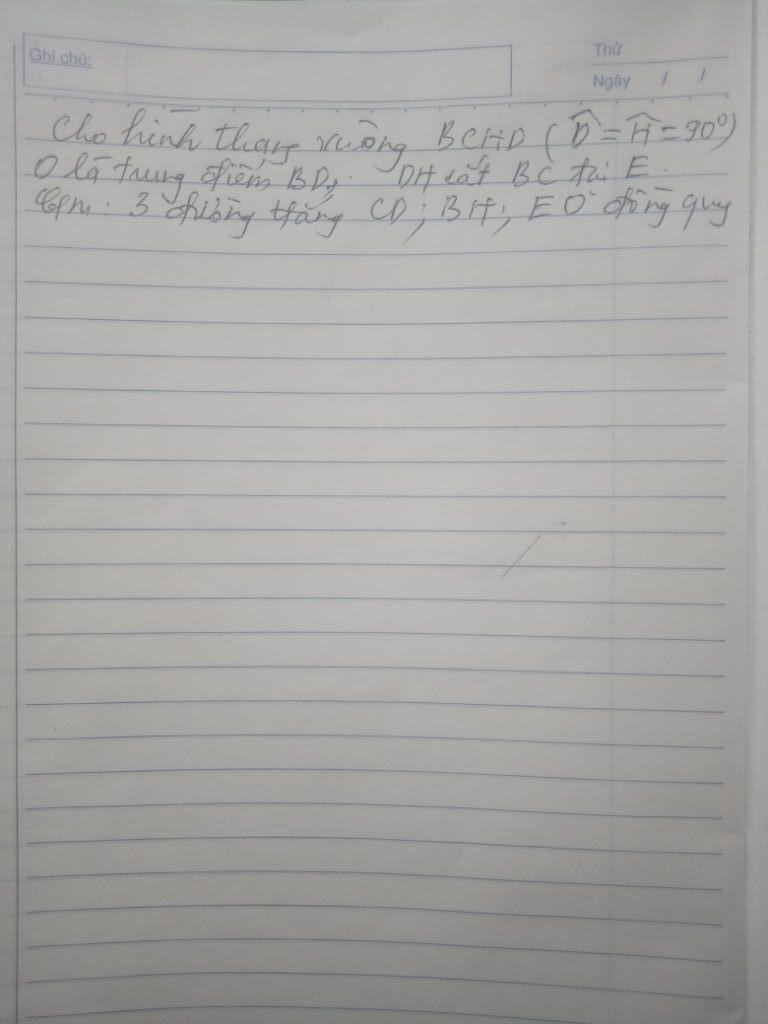 Ghi chú:
Thứ
Ngày / /
Cho hình thang vuông BCHD ( D̂ = Ĥ = 90⁰)
O là trung điểm BD, . DH cắt BC tại E.
Cm : 3 đường thẳng CD ; BH ; EO đồng quy